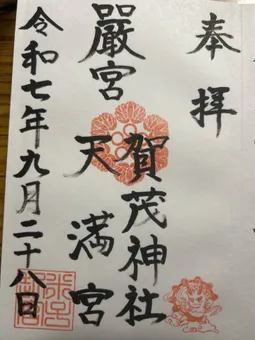 奉拝
賀茂神社
天満宮
嚴宮
令和七年九月二十八日